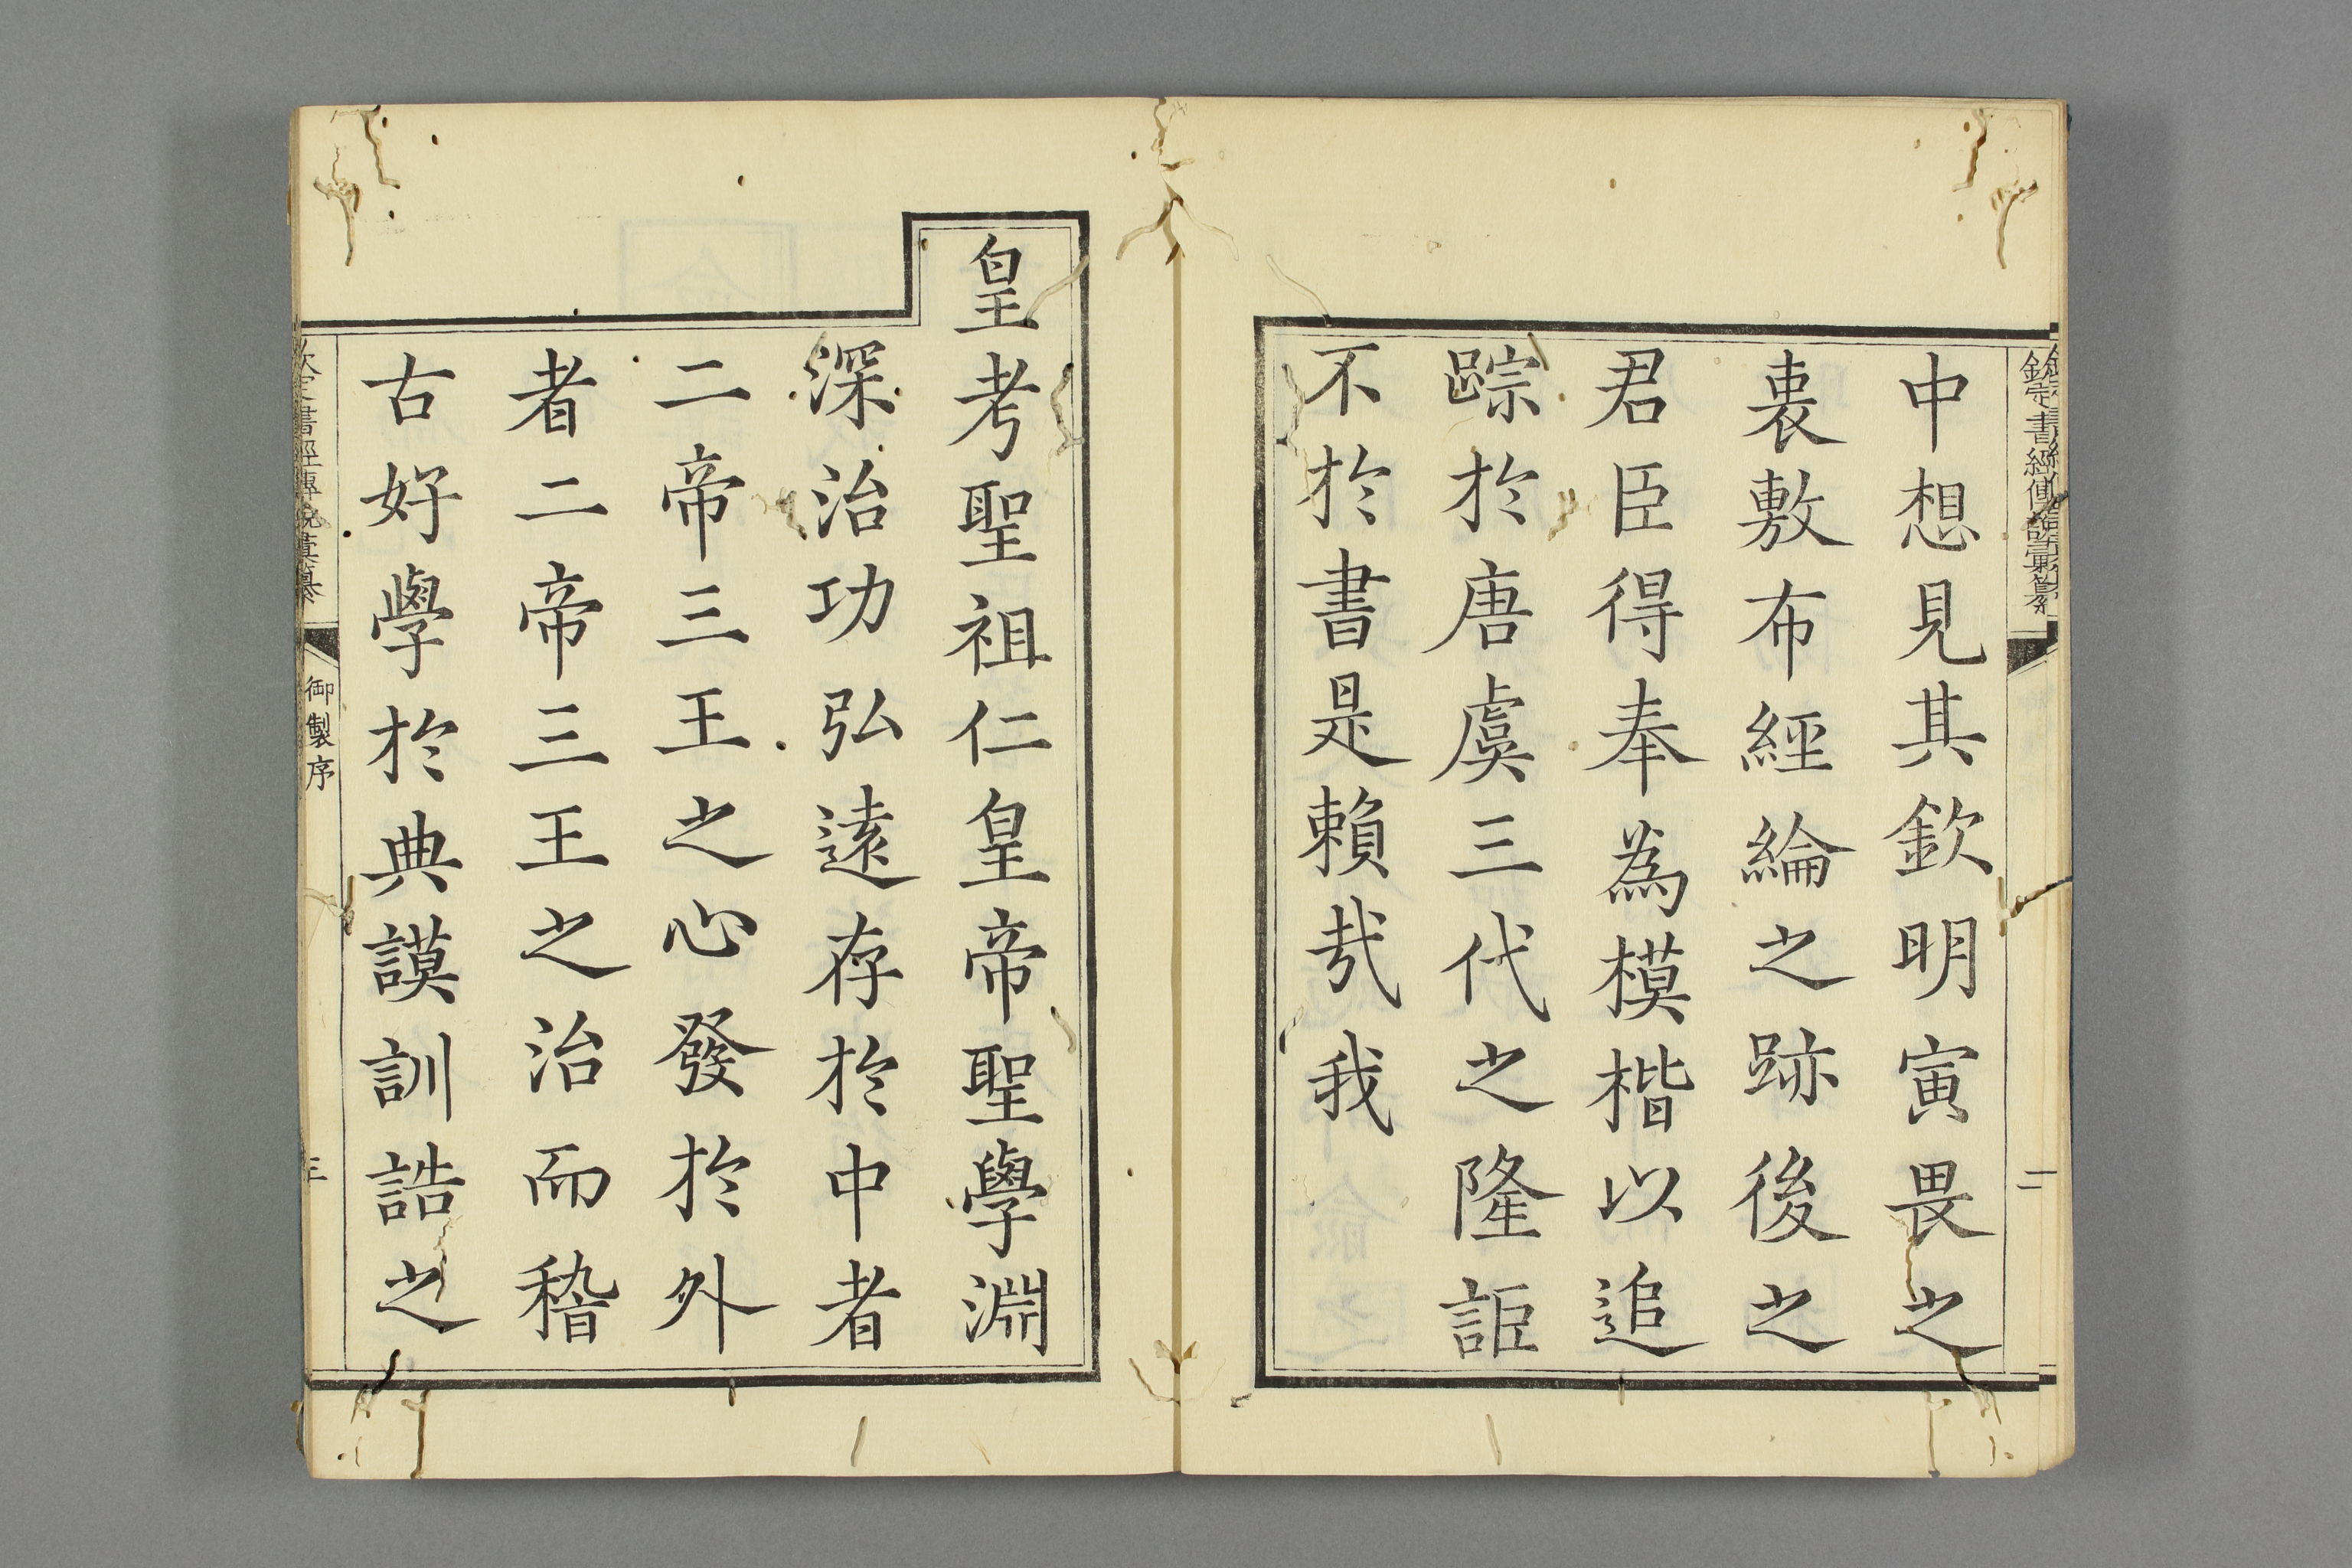 欽定書經傳說彙纂
二
中想見其欽明寅畏之
衷敷布經綸之跡後之
君臣得奉為模楷以追
踪於唐虞三代之隆詎
不於書是賴㢤我
皇考聖祖仁皇帝聖學淵
深治功弘遠存於中者
二帝三王之心發於外
者二帝三王之治而稽
古好學於典謨訓誥之
欽定書經傳說彙纂
御製序
三